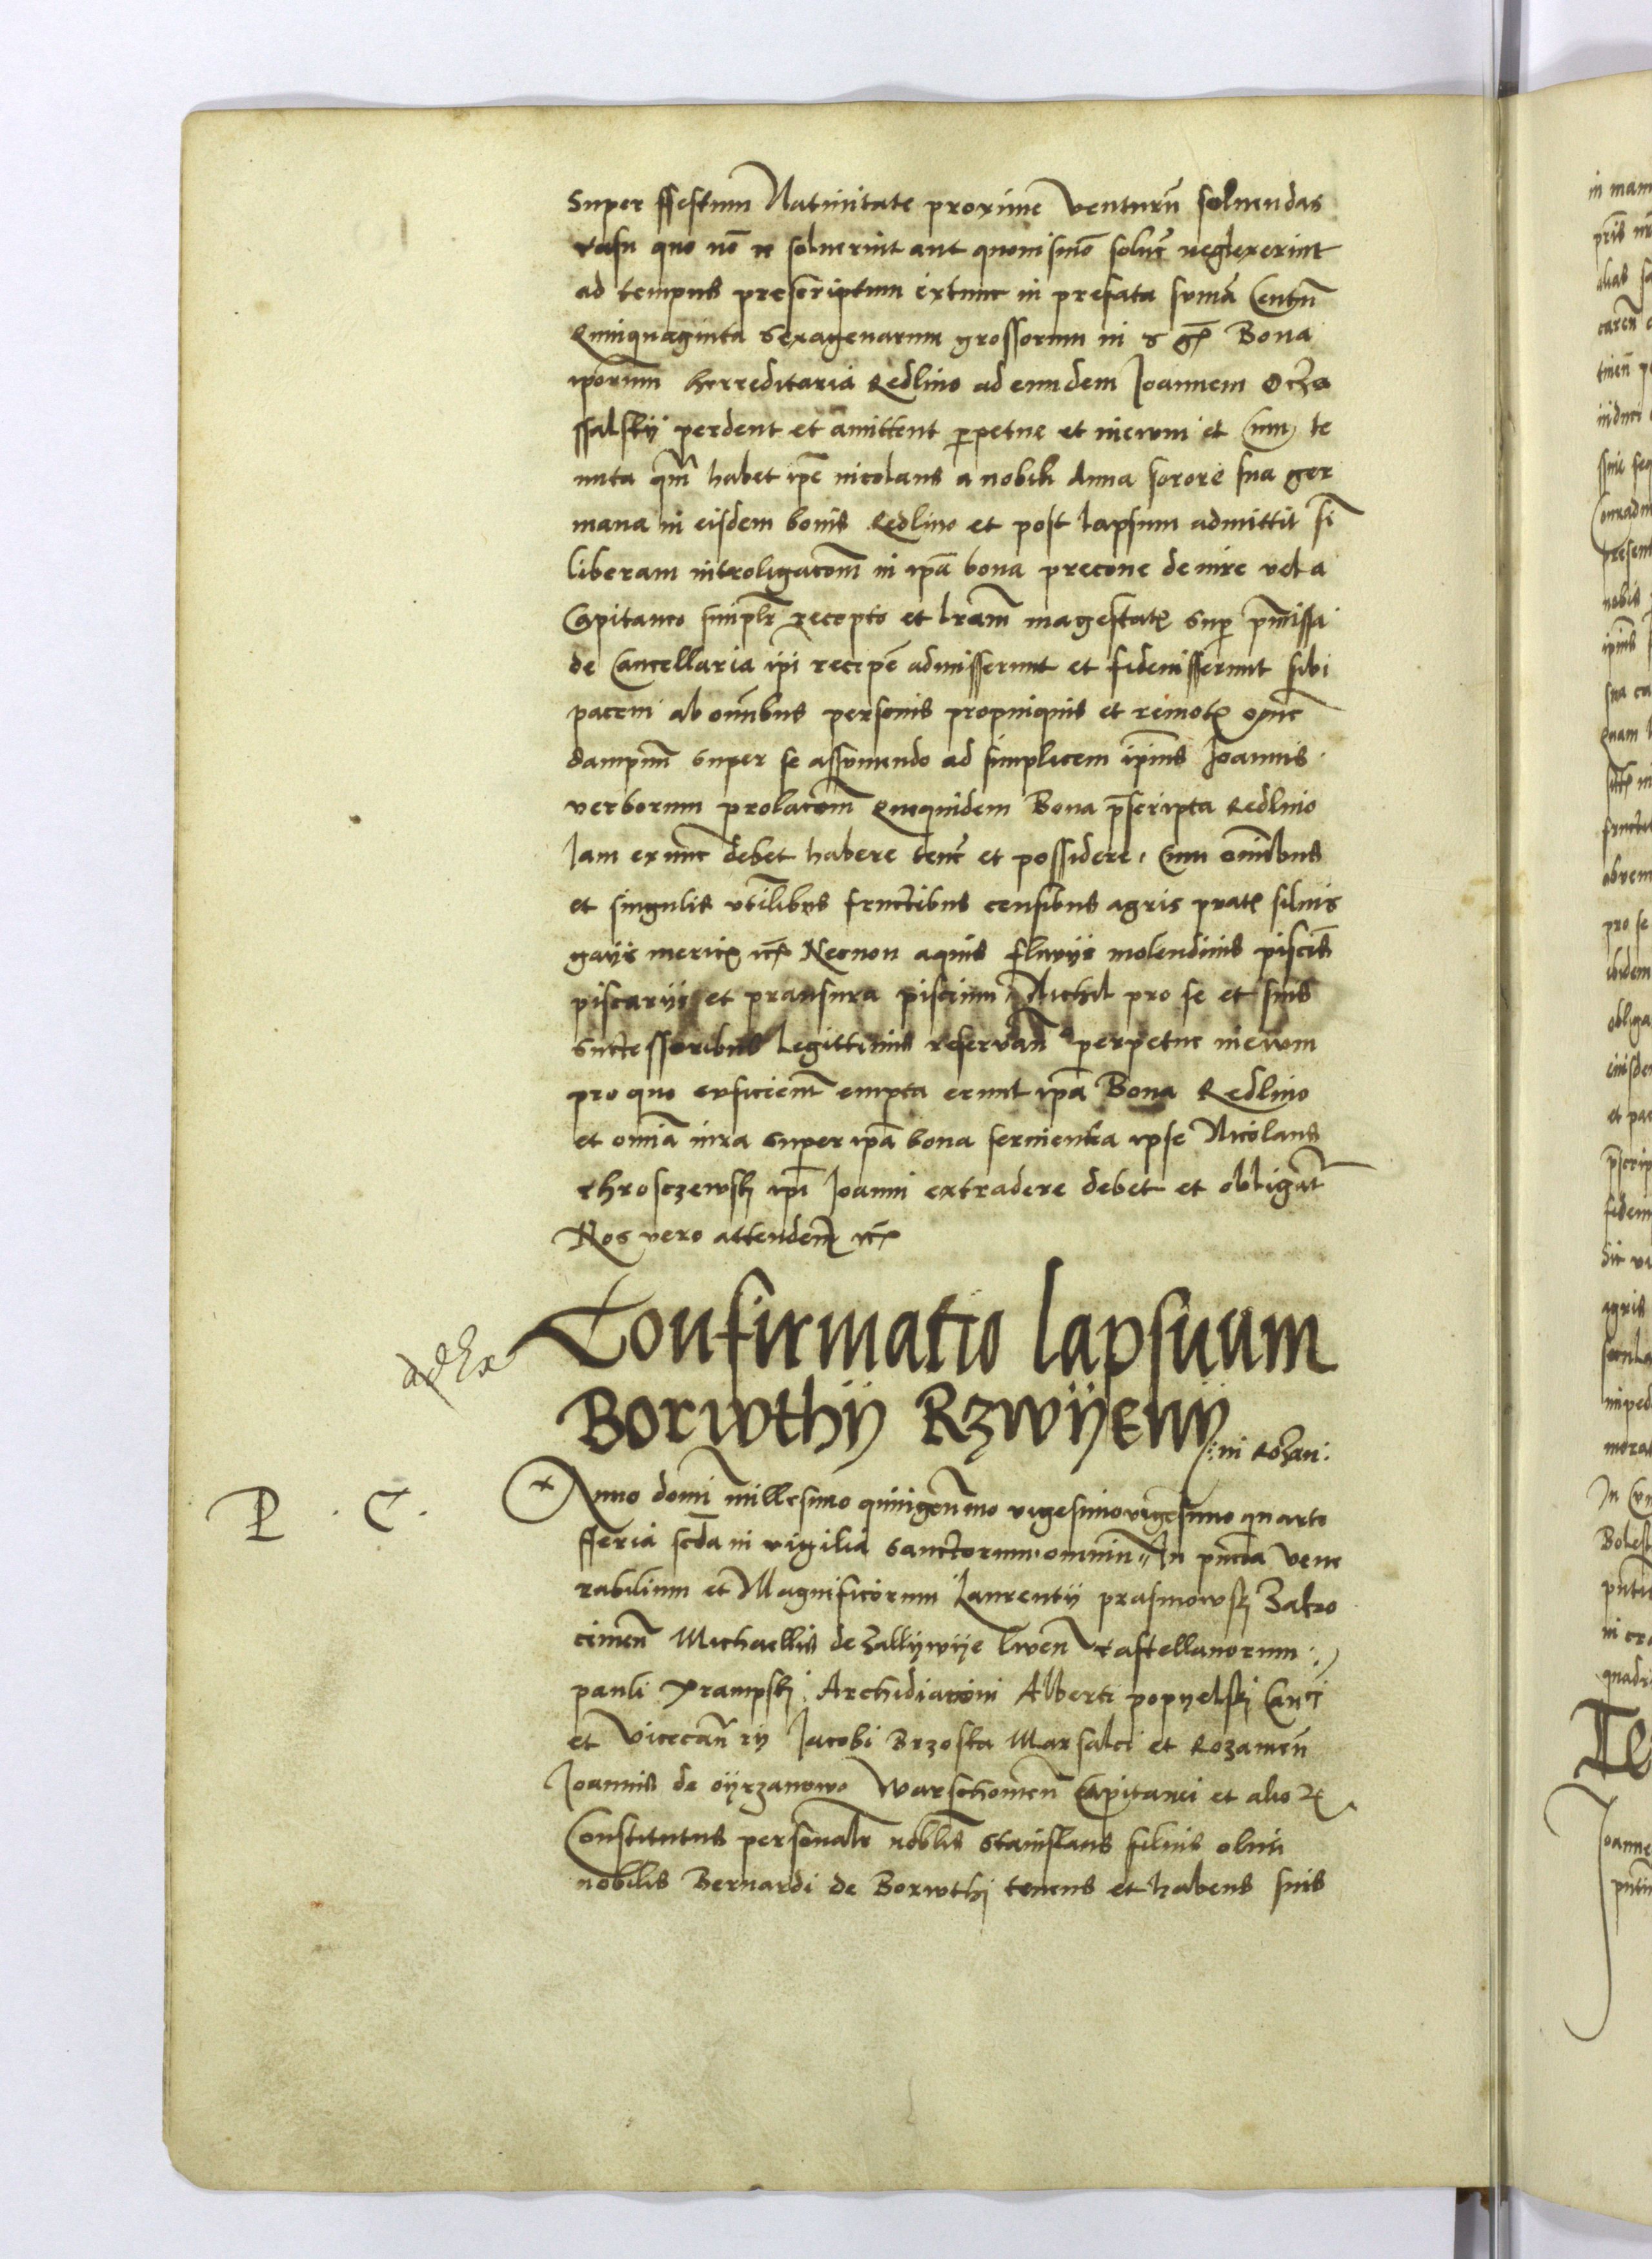 Super ffestum Natiuitate proxime venturũ soluendas
casu quo nõ soluerint aut quouismõ soluẽ neglexerint
ad tempus prescriptum extunc in prefata sũmã Centũ
Quinquaginta sexagenarum grossorum in Bona
ipõrum herreditaria Redlino ad eundem Joannem Ocza
ssalskÿ perdent et amittent ꝑpetue et in ewm et Cum te
nuta qm̃ habet ipẽ nicolaus a nobili Anna sorore sua ger
mana in eisdem bonis Redlino et post lapsum admittit
liberam introligacõm in ipã bona precone de iure vel a
Capitaneo simplr̃ recepto et lrãm magestatꝭ suꝑ pm̃issa
de Cancellaria ipĩ recipẽ admisserunt et fideiusserunt sibi
pacem ab om̃ibus personis propinquis et remotꝭ omẽ
dampnũ super se assumendo ad simplicem ipĩus Joannis
verborum prolacõm Quequidem Bona p̃scripta Redlino
Jam exnũc debet habere tenẽ et possidere Cum om̃ibus
et singulis vtilibus fructibus censibus agris pratꝭ siluis
gaÿs mericꝭ Necnon aquis fluvÿs molendinis piscis̃
piscarÿs et pransura piscium Nichil pro se et suis
successoribus legittimis reservañ perpetue in ewm
pro quo sufficient empta erunt ipã Bona Redlino
et om̃ia iura super ipã bona seruientia ipse Nicolaus
chrosczewskj ipĩ Joanni extradere debet et obligat
Nos vero attendeñ
adhx Confirmatio lapsuum
Borwthÿ Rzwÿenÿ
:in Rozan:
P . C . Anno domĩ millesimo quingen̄mo vigesimovigesimo quarto
fferia scd̃a in vigilia Sanctorum omnium In pñcia vene
rabilium et Magnificorum Laurentÿ prasmowskj Zakro
cimeñ Michaellis de Zallÿwÿe Castellanorum
pauli Archidiaconi Alberti popyelskj Canci
et Vicecañrÿ Jacobi Brzoska Marsalci et Rozaneñ
Joannis de oÿrzanowo Warschouieñ Capitanei et alioꝝ
Constitutus personalr̃ nobl̃is Stanislaus filius olim
nobilis Bernardi de Borwthj tenens et habens suis